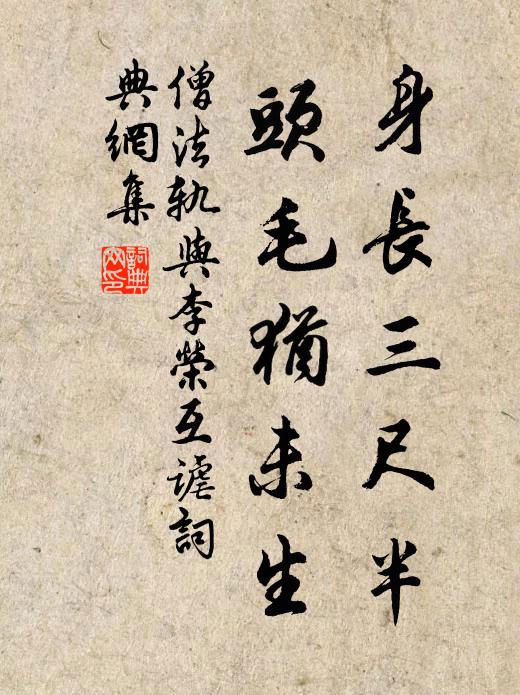 身長三尺半
頭毛猶未生
僧法軌與李榮互謔詞
典網集
詞典
网印